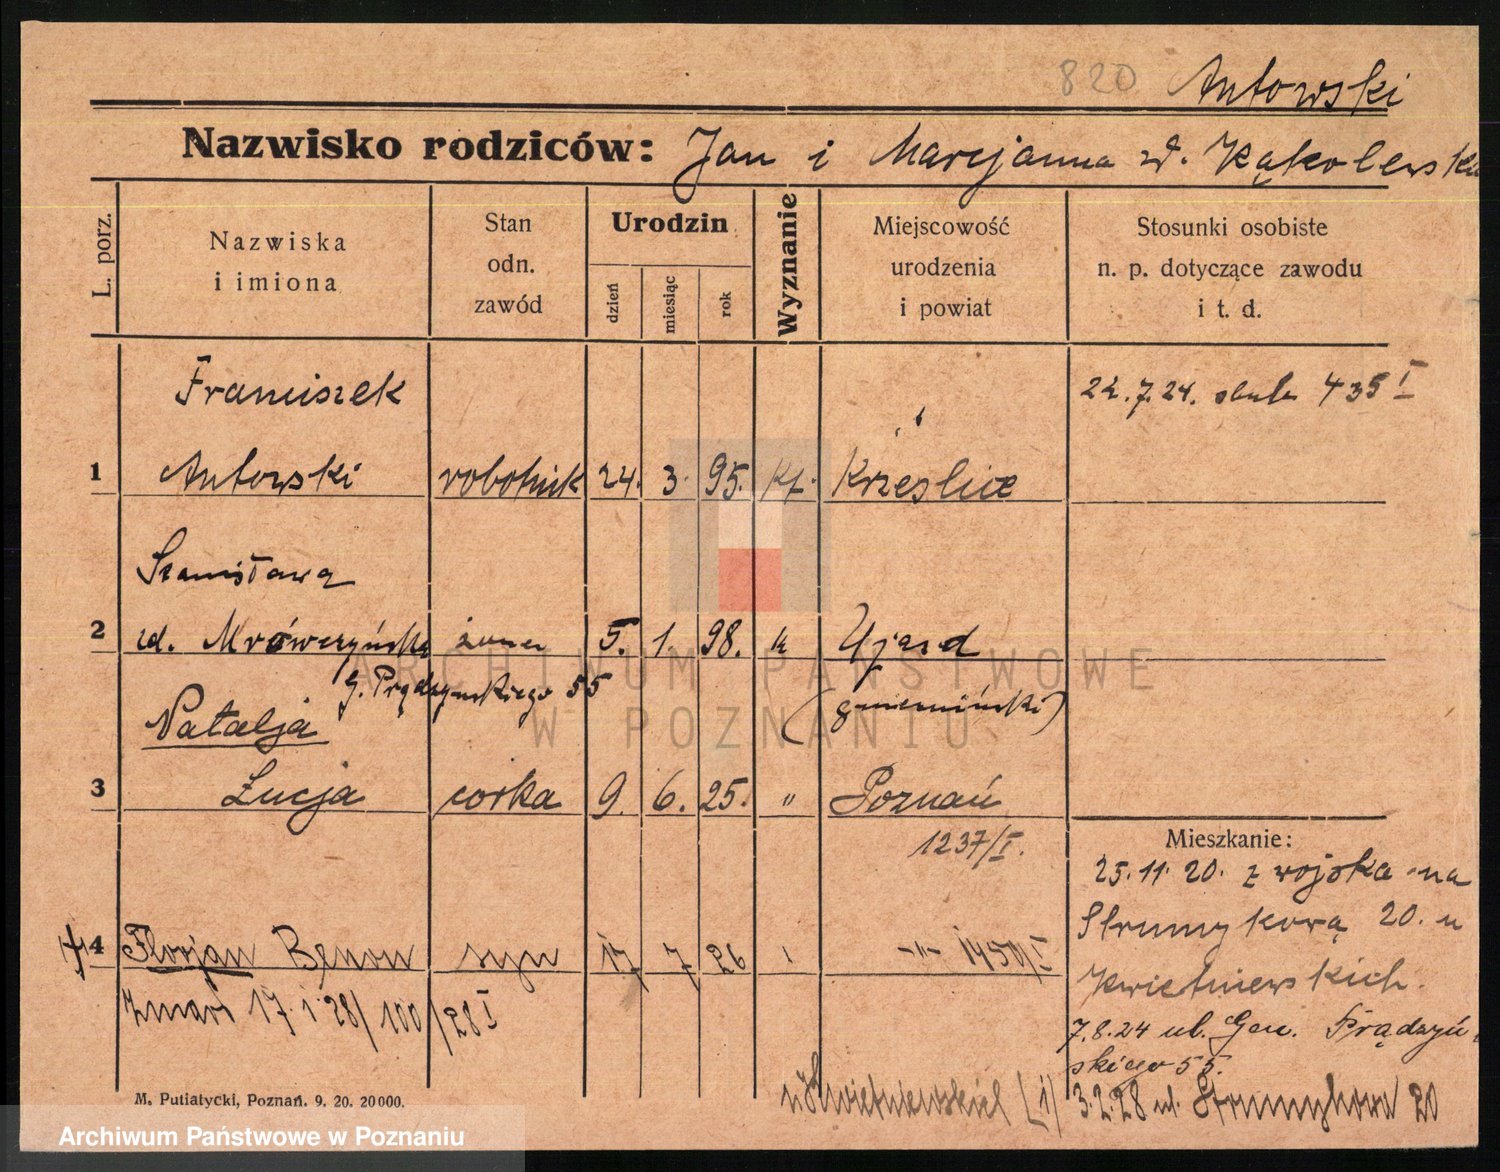 820 Antowski
Nazwisko rodziców: Jan i Marcjanna zd. Kąkolewska
L. porz.
Nazwiska
i imiona
Stan
odn.
zawód
Urodzin
dzień
miesiąc
rok
Wyznanie
Miejscowość
urodzenia
i powiat
Stosunki osobiste
n. p. dotyczące zawodu
i t. d.
Franciszek 22.7.24. 435 I
1 Antowski robotnik 24. 3. 95. kt. Krześlice
Stanisława
2 zd. Mrówczyńska żona 5. 1. 98. " Ujazd
G. Prądzyńskiego 55 (gnieźniński)
Natalja
3 Łucja córka 9. 6. 25. " Poznań
1237/I.
Mieszkanie:
25.11.20. z wojska na
Strumykową 20. u
4 Florjan Benon syn 17 7 26 -"- 1450/I
Kwietniewskich.
Zmarł 17. 1 28/100/28 I
7.8.24 ul. Gen. Prądzyń-
skiego 55.
u Kwietniewskich 3.2.28 ul. Strumykowa 20
M. Putiatycki, Poznań. 9. 20. 20000.
ARCHIWUM PAŃSTWOWE
W POZNANIU
Archiwum Państwowe w Poznaniu